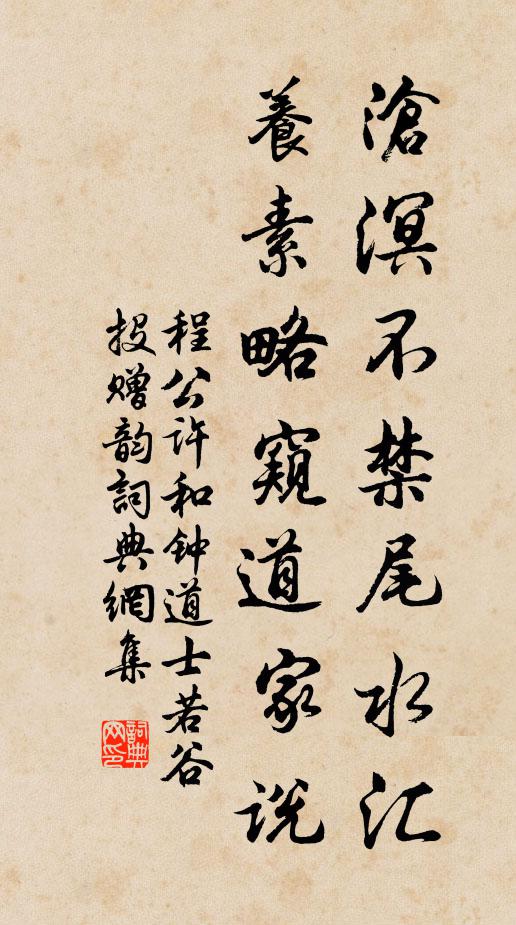 滄溟不禁尾水汇
養素略窺道家说
程公许和钟道士若谷
投赠韵詞典網集
詞典网印